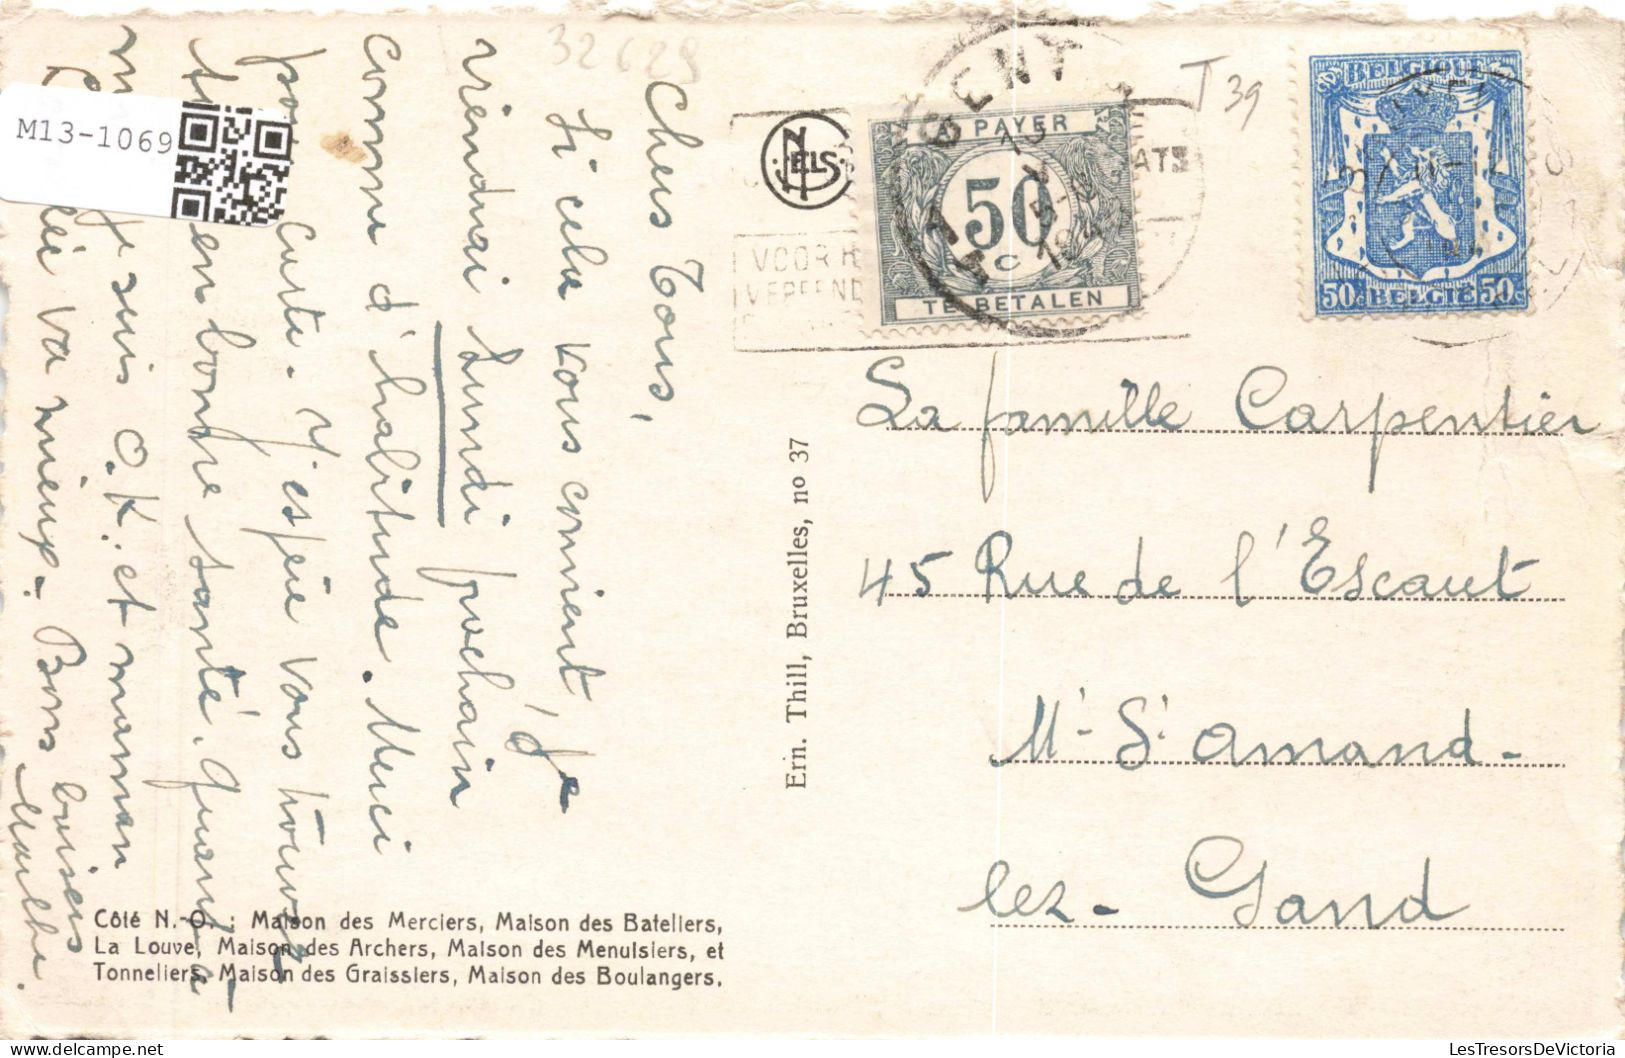 M13-1069
32629
NELS
T 39
A PAYER
50
C
TE BETALEN
GENT
A
VOOR
ATS
BELGIQUE
50c BELGIË 50c
Chers Tous,
Si cela vous convient, je
viendrai Lundi prochain
comme d'habitude. Merci
pour carte. J'espère vous trouver
en bonne santé. quant à
je suis O.K. et maman
va mieux. Bons baisers
Marthe.
Ern. Thill, Bruxelles, no 37
La famille Carpentier
45 Rue de l'Escaut
Mt St Amand-
lez-Gand
Côté N.-O. : Maison des Merciers, Maison des Bateliers,
La Louve, Maison des Archers, Maison des Menuisiers, et
Tonneliers, Maison des Graissiers, Maison des Boulangers.
LesTresorsDeVictoria